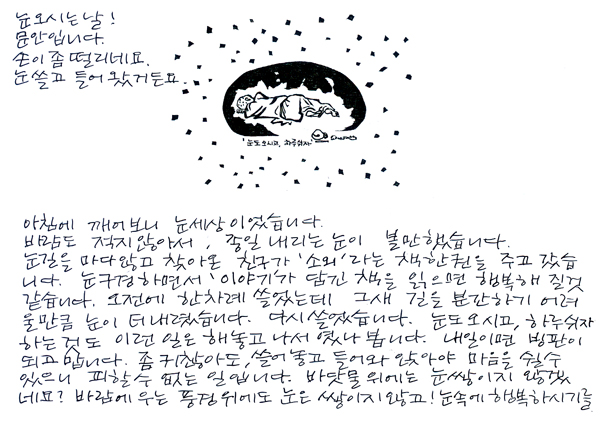 눈오시는날!
문안입니다.
손이 좀 떨리네요.
눈쓸고 들어왔거든요.
'눈도오시고, 하루쉬자'
아침에 깨어보니 눈세상이었습니다.
바람도 적지않아서, 종일 내리는 눈이 볼만했습니다.
눈길을 마다않고 찾아온 친구가 '소외'라는 책한권을 주고 갔습
니다. 눈구경하면서 '이야기'가 담긴 책을 읽으면 행복해 질것
같습니다. 오전에 한차례 쓸었는데 그새 길을 분간하기 어려
울만큼 눈이 더내렸습니다. 다시쓸었습니다. 눈도오시고, 하루쉬자
하는것도 이런 일은 해놓고 나서 였나 봅니다. 내일이면 빙판이
되고 맙니다. 좀 귀찮아도, 쓸어놓고 들어와 앉아야 마음을 쉴수
있으니 피할수 없는 일입니다. 바닷물위에는 눈쌓이지 않겠
네요? 바람에 우는 풍경위에도 눈은 쌓이지 않고! 눈속에 행복하시기를